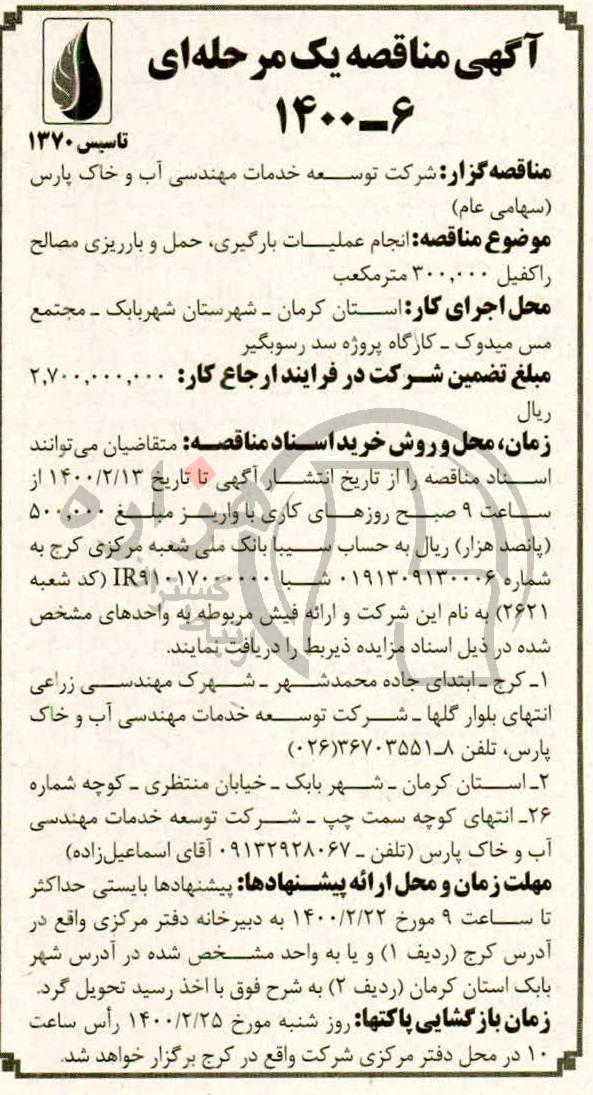 آگهی مناقصه یک مرحله‌ای
۶ـ۱۴۰۰
تاسیس ۱۳۷۰
مناقصه‌گزار: شرکت توسعه خدمات مهندسی آب و خاک پارس
(سهامی عام)
موضوع مناقصه: انجام عملیات بارگیری، حمل و بارریزی مصالح
راکفیل ۳۰۰,۰۰۰ مترمکعب
محل اجرای کار: استان کرمان ـ شهرستان شهربابک ـ مجتمع
مس میدوک ـ کارگاه پروژه سد رسوبگیر
مبلغ تضمین شرکت در فرایند ارجاع کار: ۲,۷۰۰,۰۰۰,۰۰۰
ریال
زمان، محل و روش خرید اسناد مناقصه: متقاضیان می‌توانند
اسناد مناقصه را از تاریخ انتشار آگهی تا تاریخ ۱۴۰۰/۲/۱۳ از
ساعت ۹ صبح روزهای کاری با واریز مبلغ ۵۰۰,۰۰۰
(پانصد هزار) ریال به حساب سیبا بانک ملی شعبه مرکزی کرج به
شماره ۰۱۹۱۳۰۹۱۳۰۰۰۶ شبا IR۹۱۰۱۷۰۰۰۰۰۰ (کد شعبه
۲۶۲۱) به نام این شرکت و ارائه فیش مربوطه به واحدهای مشخص
شده در ذیل اسناد مزایده ذیربط را دریافت نمایند.
۱ـ کرج ـ ابتدای جاده محمدشهر ـ شهرک مهندسی زراعی
انتهای بلوار گلها ـ شرکت توسعه خدمات مهندسی آب و خاک
پارس، تلفن ۸ـ۳۶۷۰۳۵۵۱(۰۲۶)
۲ـ استان کرمان ـ شهر بابک ـ خیابان منتظری ـ کوچه شماره
۲۶ـ انتهای کوچه سمت چپ ـ شرکت توسعه خدمات مهندسی
آب و خاک پارس (تلفن ـ ۰۹۱۳۲۹۲۸۰۶۷ آقای اسماعیل‌زاده)
مهلت زمان و محل ارائه پیشنهادها: پیشنهادها بایستی حداکثر
تا ساعت ۹ مورخ ۱۴۰۰/۲/۲۲ به دبیرخانه دفتر مرکزی واقع در
آدرس کرج (ردیف ۱) و یا به واحد مشخص شده در آدرس شهر
بابک استان کرمان (ردیف ۲) به شرح فوق با اخذ رسید تحویل گرد.
زمان بازگشایی پاکتها: روز شنبه مورخ ۱۴۰۰/۲/۲۵ رأس ساعت
۱۰ در محل دفتر مرکزی شرکت واقع در کرج برگزار خواهد شد.